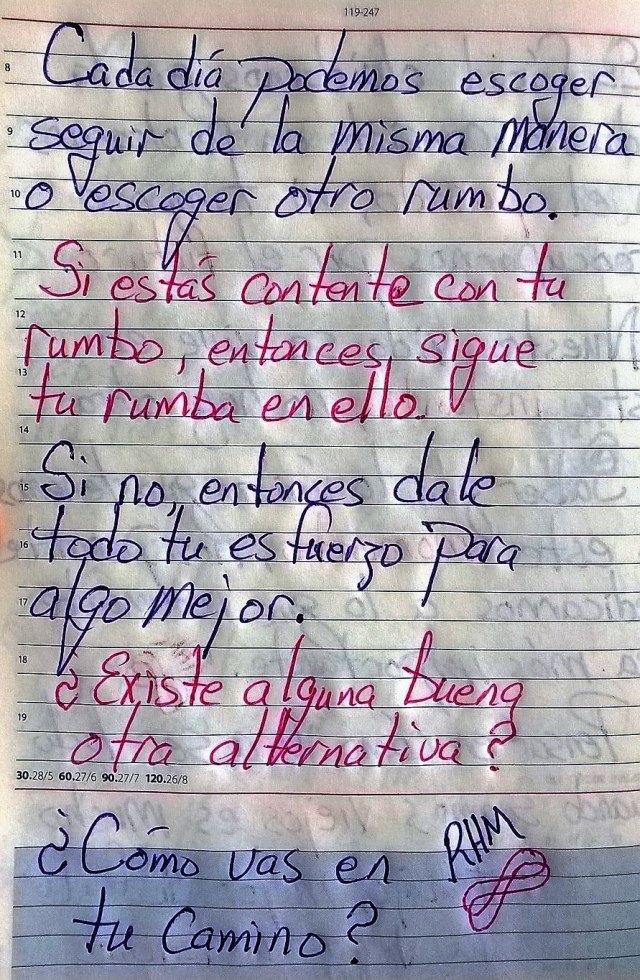 119-247
8 Cada día podemos escoger
9 seguir de la misma manera
10 o escoger otro rumbo.
11 Si estás contente con tu
12 rumbo, entonces, sigue
13 tu rumba en ello.
14
15 Si no, entonces dale
16 todo tu esfuerzo para
17 algo mejor.
18 ¿Existe alguna buena
19 otra alternativa?
30.28/5 60.27/6 90.27/7 120.26/8
¿Cómo vas en RHM
tu Camino?